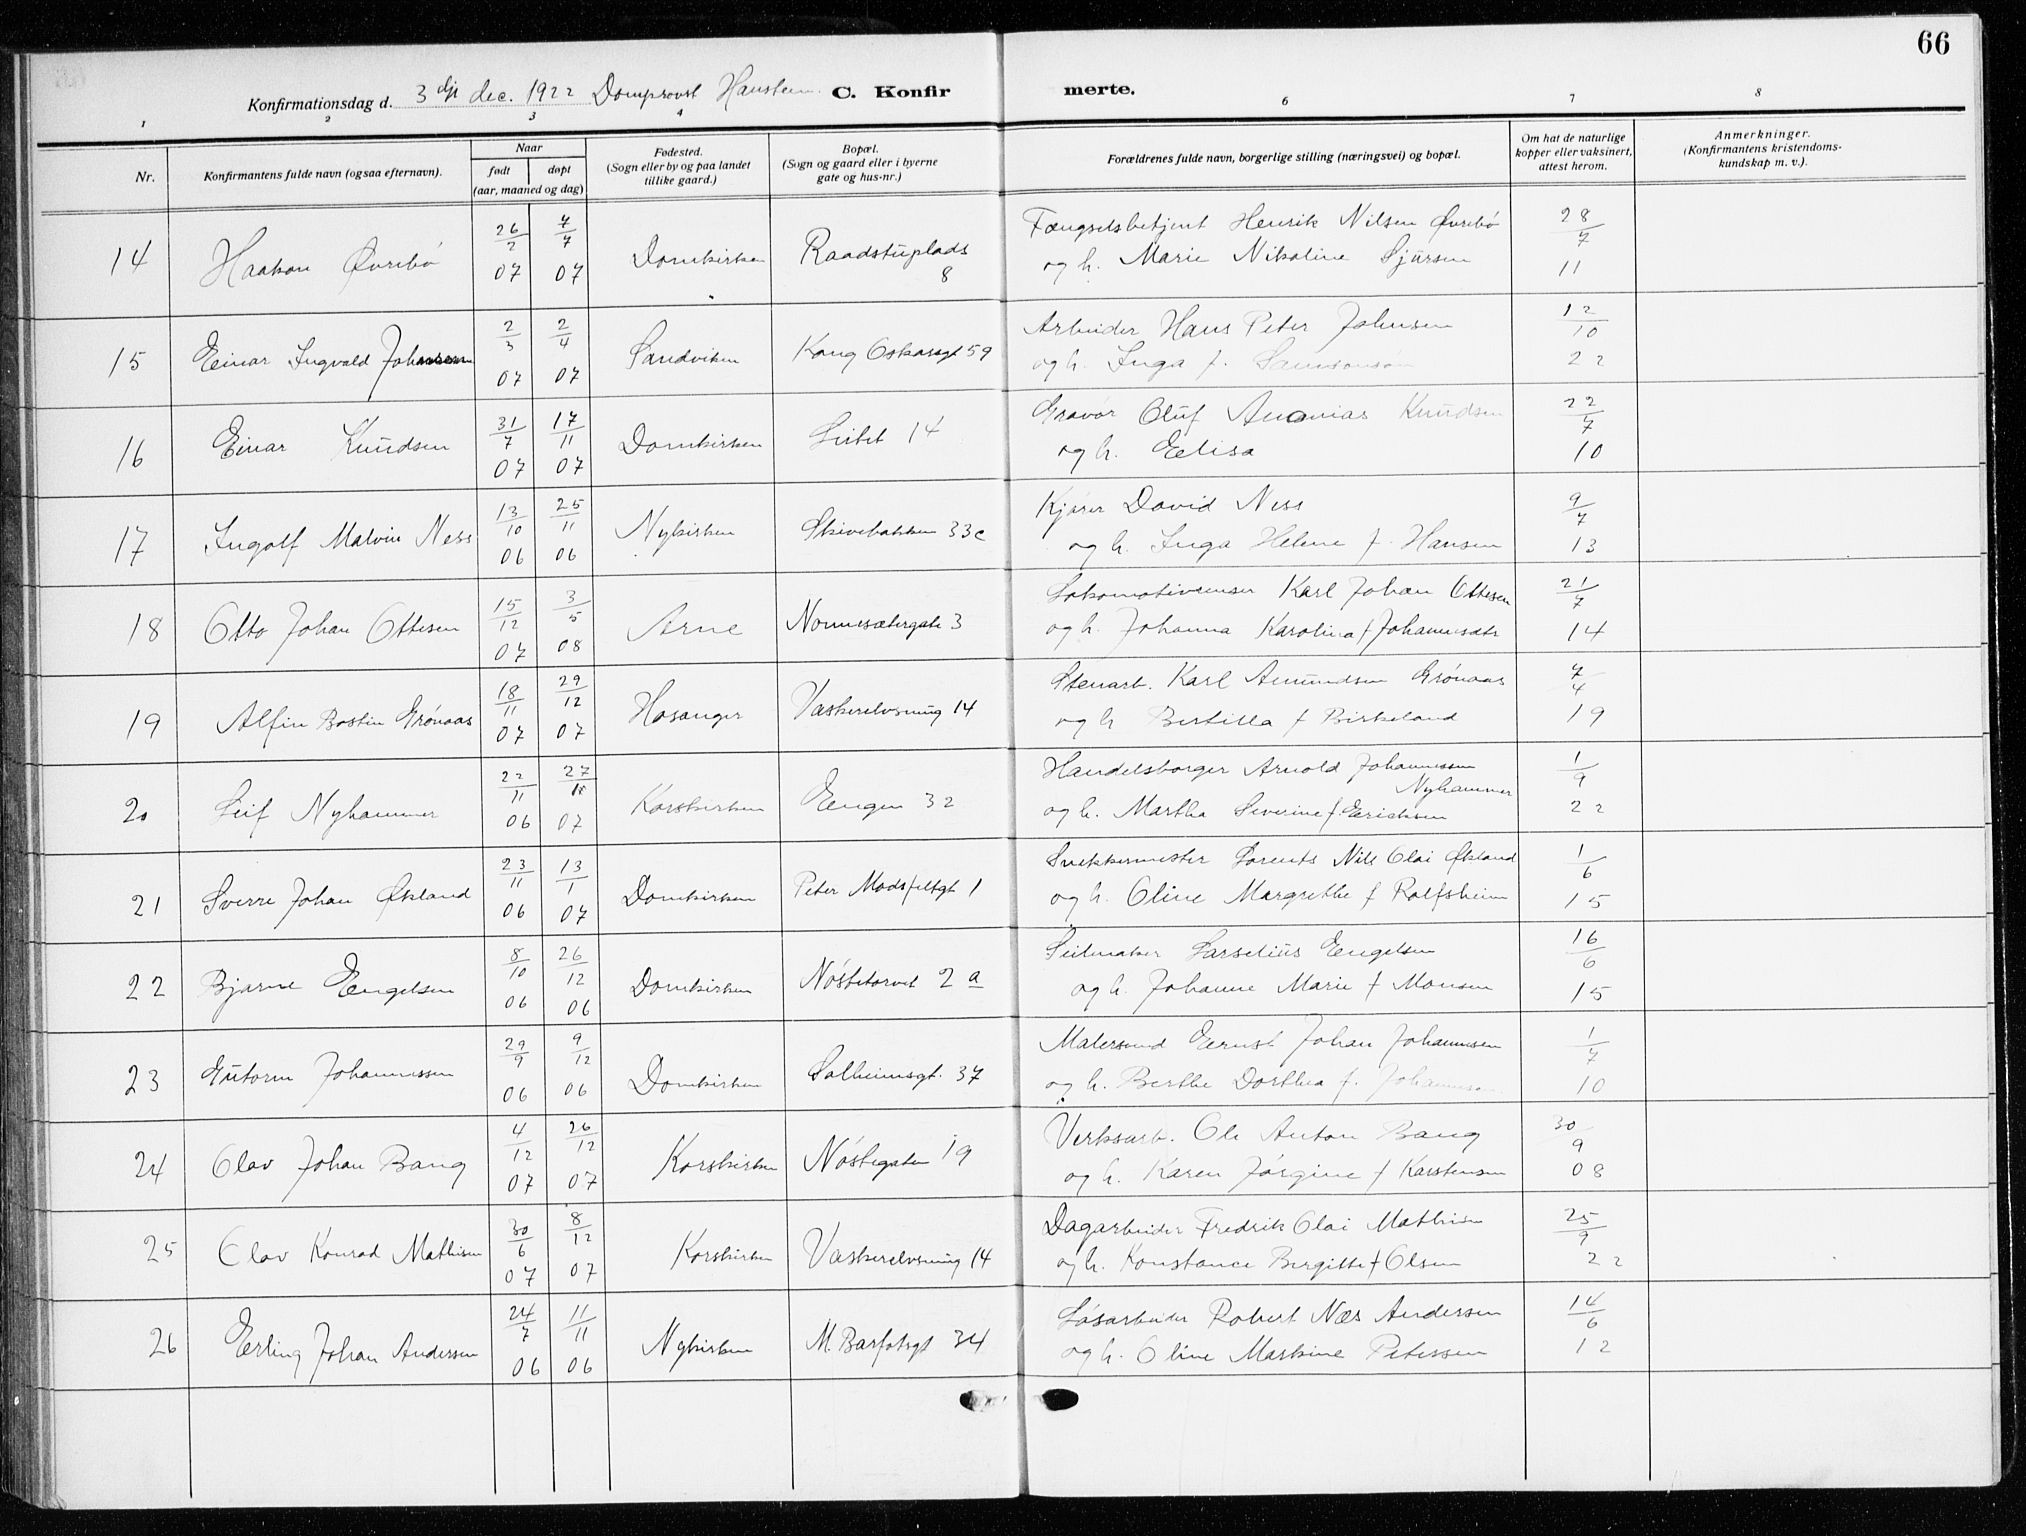 66
Konfirmationsdag d. 3dje dec. 1922 Domprovst Hansteen. C. Konfirmerte.
1 2 3 4 6 7 8
Nr. Konfirmantens fulde navn (ogsaa efternavn). Naar født døpt (aar, maaned og dag) Fødested. (Sogn eller by og paa landet tillike gaard.) Bopæl. (Sogn og gaard eller i byerne gate og hus-nr.) Forældrenes fulde navn, borgerlige stilling (næringsvei) og bopæl. Om hat de naturlige kopper eller vaksinert, attest herom. Anmerkninger. (Konfirmantens kristendomskundskap m. v.).
14 Haakon Øvrebö 26/2 07 7/7 07 Domkirken Raadstuplads 8 Fængselsbetjent Henrik Nilsen Øvrebö 28/7 11
og h. Marie Nikoline Sjursen
15 Einar Ingvald Johansen 2/3 07 2/4 07 Sandviken Kong Oskarsgt 59 Arbeider Hans Peter Johnsen 12/10 22
og h. Inga f. Samsonsön
16 Einar Knudsen 31/7 07 17/11 07 Domkirken Leitet 14 Gravör Oluf Ananias Knudsen 22/7 10
og h. Elisa
17 Ingolf Malvin Ness 13/10 06 25/11 06 Nykirken Skivebakken 33c Kjører David Ness 9/7 13
og h. Inga Helene f. Hansen
18 Otto Johan Ottesen 15/12 07 3/5 08 Arne Nonnesætergate 3 Lokomotivpudser Karl Johan Ottesen 21/7 14
og h. Johanna Karolina f Johannesdtr
19 Alfin Bostin Grönaas 18/11 07 29/12 07 Hosanger Vaskerelvsmug 14 Stenarb. Karl Amundsen Grönaas 7/4 19
og h Bertilla f Birkeland
20 Leif Nyhammer 22/11 06 27/10 07 Korskirken Engen 32 Handelsborger Arnold Johannessen Nyhammer 1/9 22
og h. Martha Severine f. Erichsen
21 Sverre Johan Økland 23/11 06 13/1 07 Domkirken Peter Modsfeltgt 1 Snekkermester Lorents Nils Olai Økland 1/6 15
og h. Oline Margrethe f Rolfsheim
22 Bjarne Engelsen 8/10 06 26/12 06 Domkirken Nöstetorvet 2 a Seilmaker Larselius Engelsen 16/6 15
og h. Johanne Marie f Monsen
23 Gutorm Johannessen 29/9 06 9/12 06 Domkirken Solheimsgt. 37 Malersvend Ernst Johan Johannesen 1/7 10
og h. Berthe Dorthea f. Johannesen
24 Olav Johan Bang 4/12 07 26/12 07 Korskirken Nöstegaten 19 Verksarb. Ole Anton Bang 30/9 08
og h. Karen Jörgine f Karstensen
25 Olav Konrad Mathisen 30/6 07 8/12 07 Korskirken Vaskerelvsmug 14 Dagarbeider Fredrik Olai Mathisen 25/9 22
og h. Konstance Bergitte f Olsen
26 Erling Johan Andersen 24/7 06 11/11 06 Nykirken M Barfotsgt 34 Lösarbeider Robert Næs Andersen 14/6 12
og h. Oline Markine Peterssen